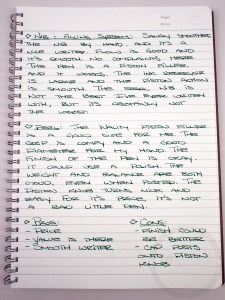 Page:
Date:
◇ Nib & Filling System: Sanjay smoother
the nib by hand and it's a
nice writer. Flow is good and
it's smooth. No complaints here.
This pen is a piston filler
and it works. The ink reservoir
is large and the piston action
is smooth. The steel nib is
not the best I've ever written
with, but it's certainly not
the worst!
◇ Feel: The Nality piston filler
is a good size for me. The
grip is comfy and a good
diameter for my hand. The
finish of the pen is okay,
it could use a polish. The
weight and balance are both
good, even when posted. The
piston knob turns nice and
easy. For it's price, it's not
a bad little pen.
◇ Pros: ◇ Cons:
- Price - Finish could
- Value is there be better
- Smooth writer - Cap posts
onto piston
knob